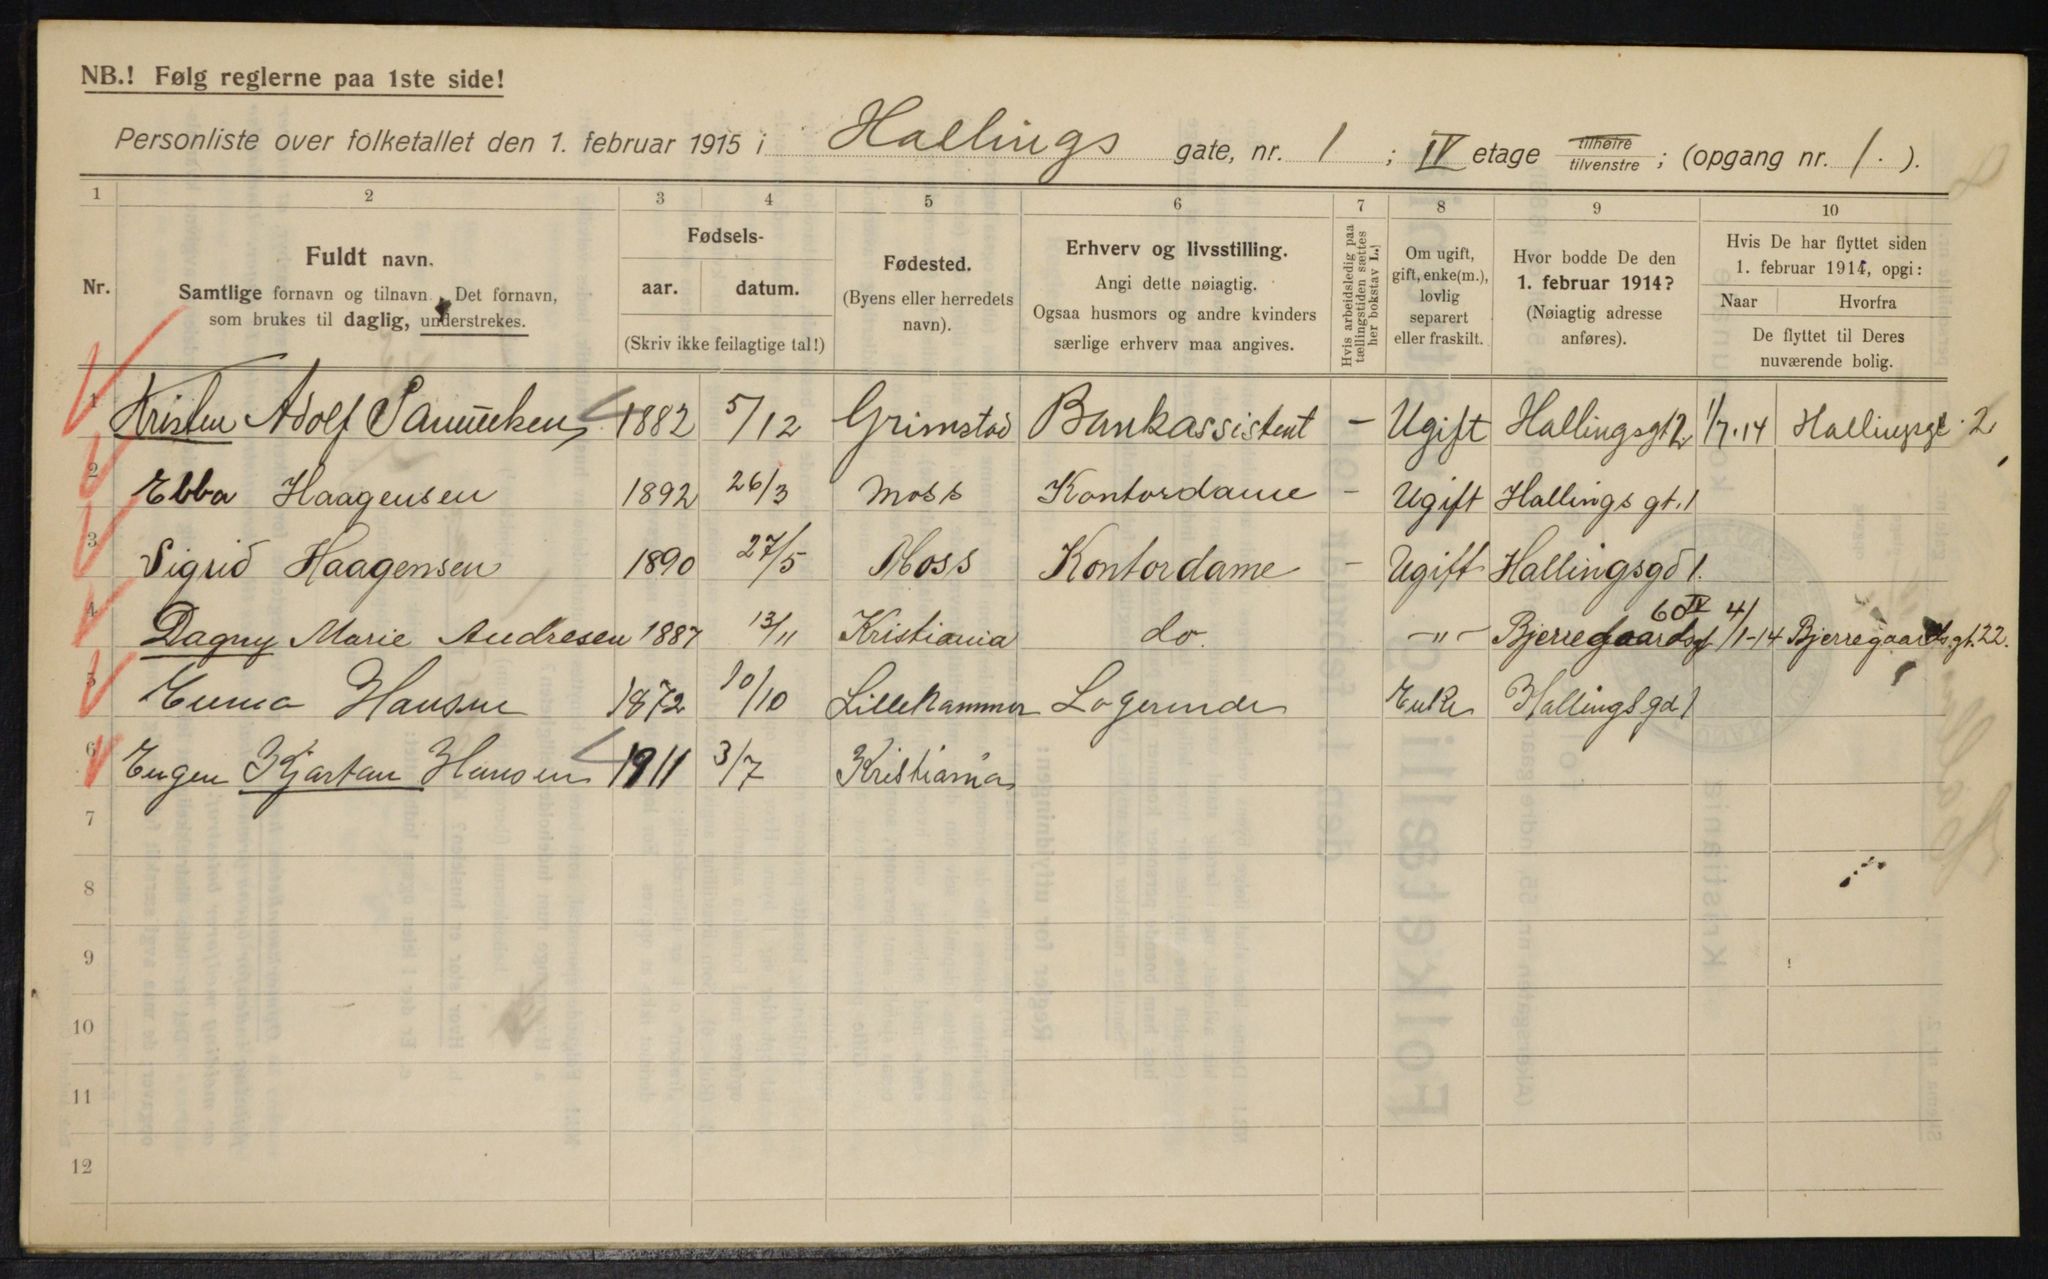 NB.! Følg reglerne paa 1ste side!
Personliste over folketallet den 1. februar 1915 i Hallings gate, nr. 1 ; IV etage tilhøire tilvenstre ; (opgang nr. 1. ).
1 2 3 4 5 6 7 8 9 10
Nr.
Fuldt navn.
Samtlige fornavn og tilnavn. Det fornavn,
som brukes til daglig, understrekes.
Fødsels-
aar. datum.
(Skriv ikke feilagtige tal!)
Fødested.
(Byens eller herredets
navn).
Erhverv og livsstilling.
Angi dette nøiagtig.
Ogsaa husmors og andre kvinders
særlige erhverv maa angives.
Hvis arbeidsledig paa
tællingstiden sættes
her bokstav L.!
Om ugift,
gift, enke(m.),
lovlig
separert
eller fraskilt.
Hvor bodde De den
1. februar 1914?
(Nøiagtig adresse
anføres).
Hvis De har flyttet siden
1. februar 1914, opgi:
Naar Hvorfra
De flyttet til Deres
nuværende bolig.
1 Kristen Adolf 1882 5/12 Grimstad Bankassistent – Ugift Hallingsgt 2 1/7.14 Hallingsgt. 2
2 Ebba Haagensen 1892 26/3 Moss Kontordame – Ugift Hallings gt. 1
3 Sigrid Haagensen 1890 27/5 Moss Kontordame – Ugift Hallingsgd 1.
4 Dagny Marie Andresen 1887 13/11 Kristiania do. –"– Bjerregaardsgt 60 IV 4/1-14 Bjerregaardsgt. 22.
5 Emma Hansen 1872 10/10 Lillehammer Logerinde Enke Hallings gd 1
6 Eugen Kjartan Hansen 1911 3/7 Kristiania
7
8
9
10
11
12